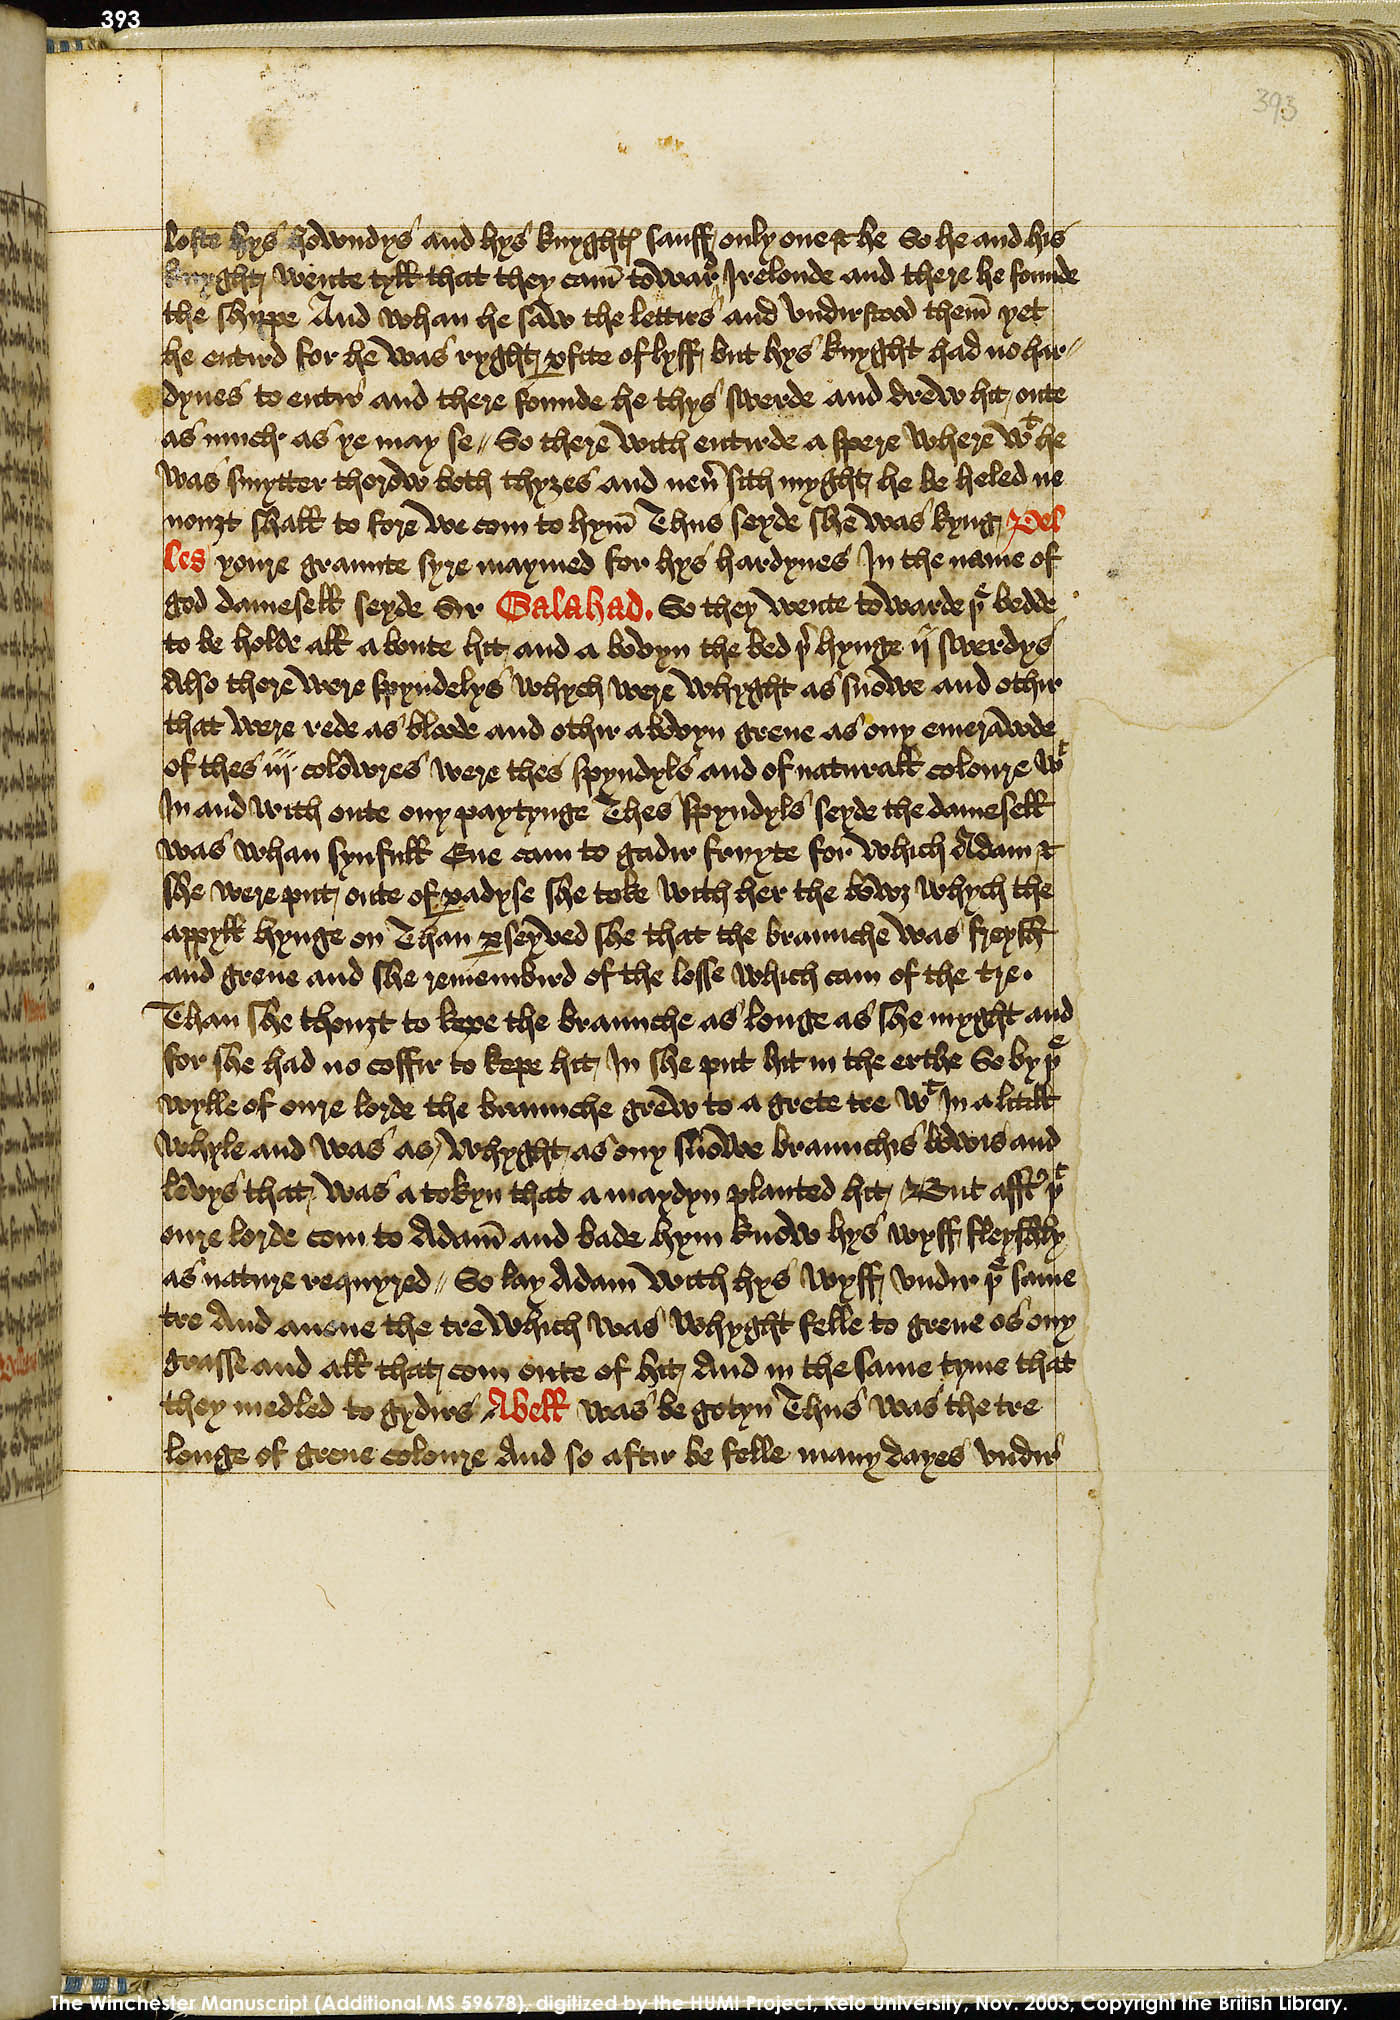 393
393
loste hys howndys and hys knyghtes sauff only one & he So he and his
knyght wente tyll that they cam towarde Irelonde and there he founde
the shyppe And whan he saw the lettirs and undirstood them yet
he entird for he was ryght pfite of lyff but hys knyght had no har
dynes to entir and there founde he thys swerde and drew hit oute
as much as ye may se // So there with entirde a spere where wt he
was smytten thorow both thyȝes and neuer sith myght he be heled ne
nouȝt shall to fore we com to hym Thus seyde she was kyng Pel
les youre graunte syre maymed for hys hardynes In the name of
god damesell seyde Sir Galahad. So they wente towarde þe bedde
to be holde all a boute hit and a bovyn the bed þer hynge ij swerdys
Also there were spyndelys whych were whyght as snowe and othir
that were rede as bloode and othir abovyn grene as ony emerawde
of thes iij colowres were thes spyndyls and of naturall coloure wt
In and with oute ony payntynge Thes spyndyls seyde the damesell
was whan synfull Eue cam to gadir fruyte for which Adam &
she were put oute of padyse she toke with her the bowȝ whych the
appyll hynge on Than pseyved she that the braunche was freysh
and grene and she remembird of the losse which cam of the tre.
Than she thouȝt to kepe the braunche as longe as she myght and
for she had no coffir to kepe hit In she put hit in the erthe So by þe
wylle of oure lorde the braunche grew to a grete tre wt In a litill
whyle and was as whyght as ony snowe braunchis bowis and
levys that was a tokyn that a maydyn planted hit But afftir þt
oure lorde com to Adam and bade hym know hys wyff fleyshly
as nature requyred // So lay Adam with hys wyff undir þe same
tre And anone the tre which was whyght felle to grene os ony
grasse and all that com oute of hit And in the same tyme that
they medled to gydirs Abell was be gotyn Thus was the tre
longe of grene coloure And so aftir be felle many dayes undir
The Winchester Manuscript (Additional MS 59678), digitized by the HUMI Project, Keio University, Nov. 2003, Copyright the British Library.